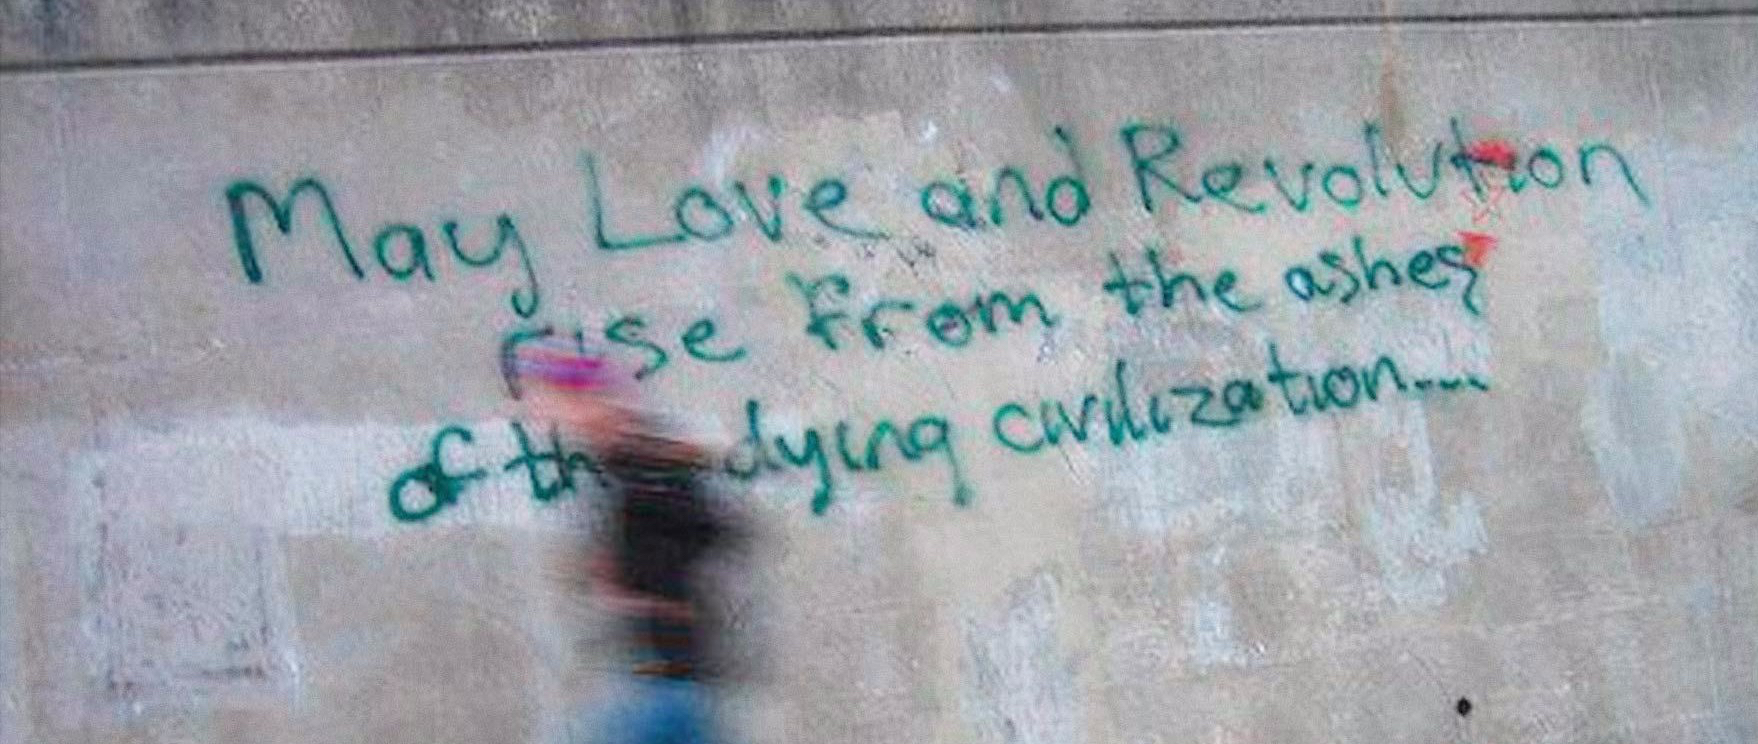 May Love and Revolution
rise from the ashes
of the dying civilization....